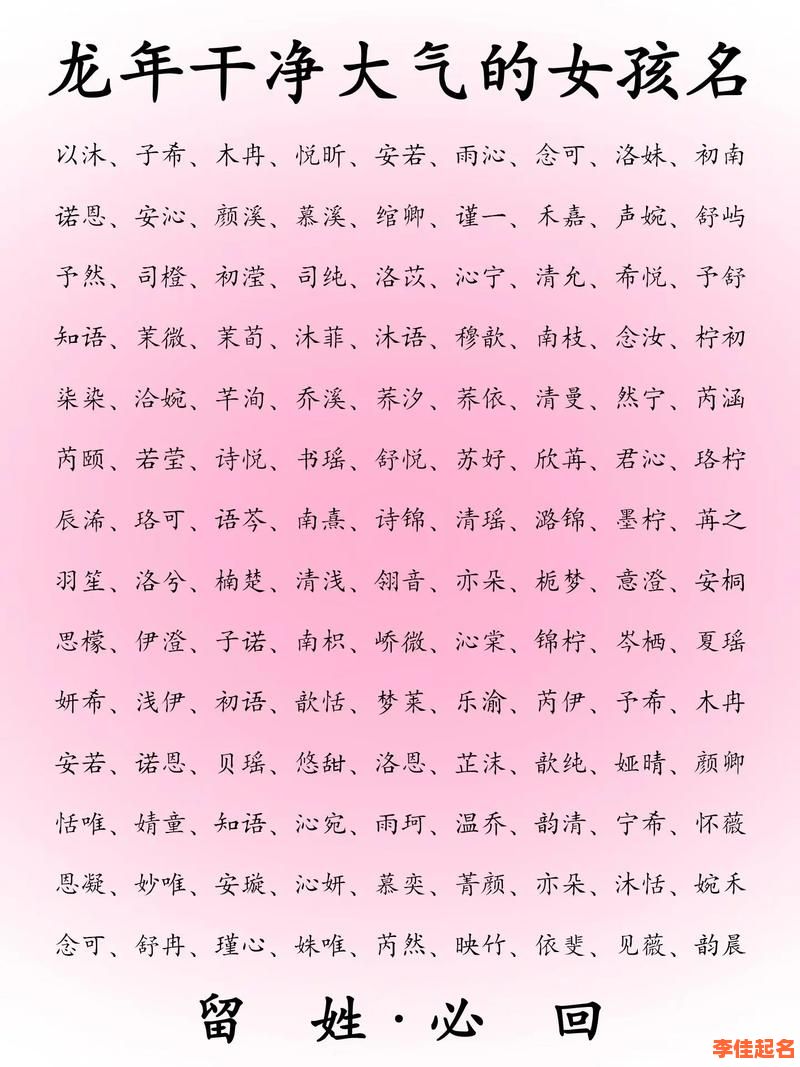 龙年干净大气的女孩名
以沐、子希、木冉、悦昕、安若、雨沁、念可、洛妹、初南
诺恩、安沁、颜溪、慕溪、绾卿、谨一、禾嘉、声婉、舒屿
予然、司橙、初滢、司纯、洛苡、沁宁、清允、希悦、予舒
知语、茉微、茉荀、沐菲、沐语、穆歆、南枝、念汝、柠初
柒染、洽婉、芊洵、乔溪、荞汐、荞依、清曼、然宁、芮涵
芮颐、若莹、诗悦、书瑶、舒悦、苏好、欣苒、君沁、珞柠
辰浠、珞可、语芩、南熹、诗锦、清瑶、潞锦、墨柠、苒之
羽笙、洛兮、楠楚、清浅、翎音、亦朵、栀梦、意澄、安桐
思檬、伊澄、子诺、南枳、峤微、沁棠、锦柠、岑栖、夏瑶
妍希、浅伊、初语、歆恬、梦莱、乐渝、芮伊、予希、木冉
安若、诺恩、贝瑶、悠甜、洛恩、芷沫、歆纯、娅晴、颜卿
恬唯、婧童、知语、沁宛、雨珂、温乔、韵清、宁希、怀薇
恩凝、妙唯、安璇、沁妍、慕奕、菁颜、亦朵、沐恬、婉禾
念可、舒冉、瑾心、姝唯、芮然、映竹、依斐、见薇、韵晨
留姓·必回
李佳起名